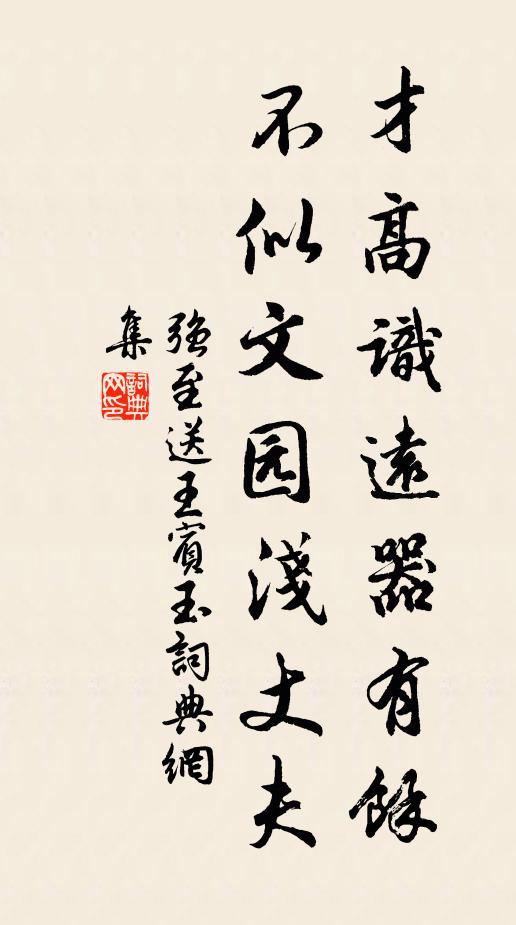 才高識遠器有餘
不似文园淺丈夫
強至送王賓玉詞典網
集
詞典网印